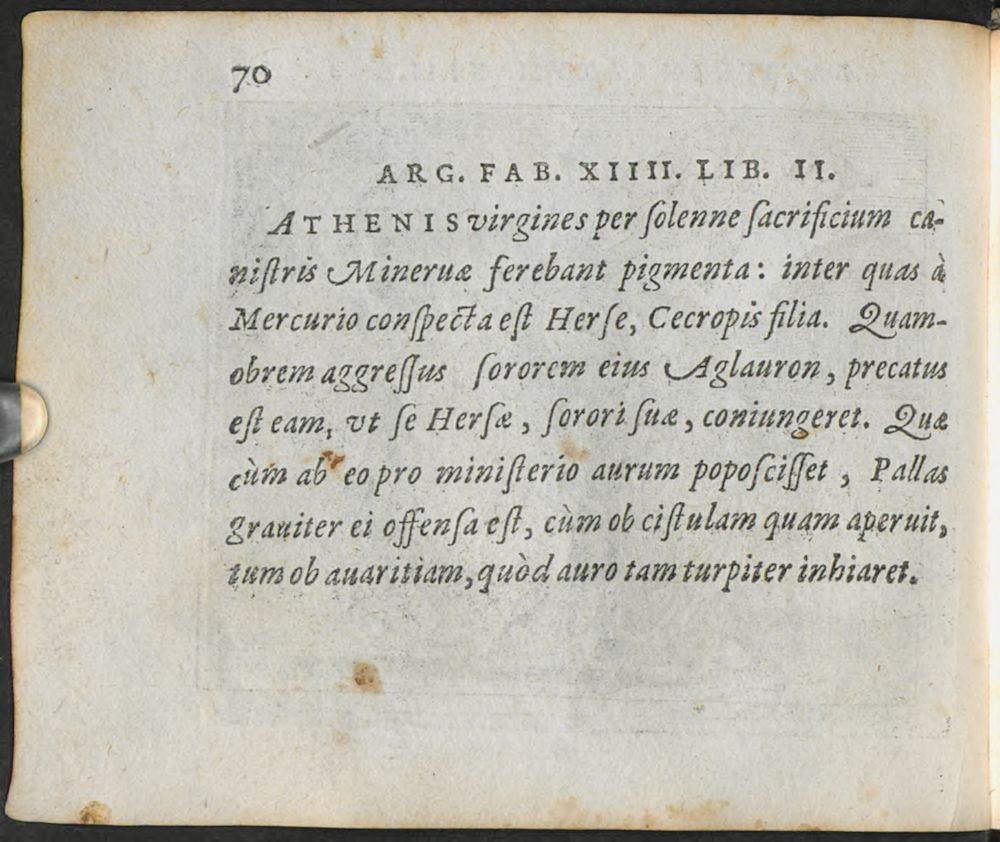 70
ARG. FAB. XIIII. LIB. II.
ATHENIS virgines per ſolenne ſacrificium ca-
niſtris Mineruæ ferebant pigmenta: inter quas à
Mercurio conſpecta eſt Herſe, Cecropis filia. Quam-
obrem aggreſſus ſororem eius Aglauron, precatus
eſt eam, vt ſe Herſæ, ſorori ſuæ, coniungeret. Quæ
cùm ab eo pro miniſterio aurum popoſciſſet, Pallas
grauiter ei offenſa eſt, cùm ob ciſtulam quam aperuit,
tum ob auaritiam, quòd auro tam turpiter inhiaret.